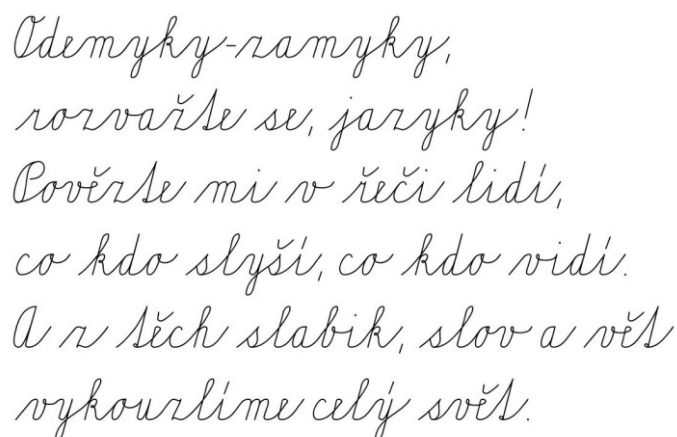 Odemyky-zamyky,
rozvažte se, jazyky!
Povězte mi v řeči lidí,
co kdo slyší, co kdo vidí.
A z těch slabik, slov a vět
vykouzlíme celý svět.